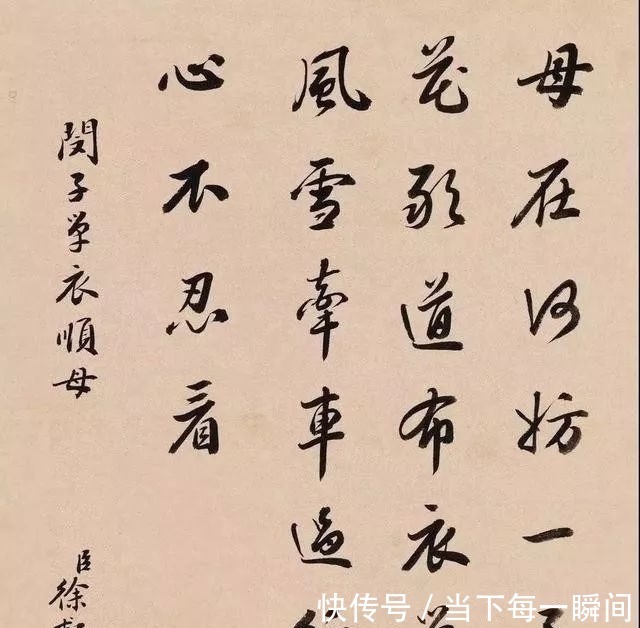 母在何妨一
花敢道布衣
風雪牽車過
心不忍看
閔子單衣順母
臣徐
快传号/当下每一瞬间